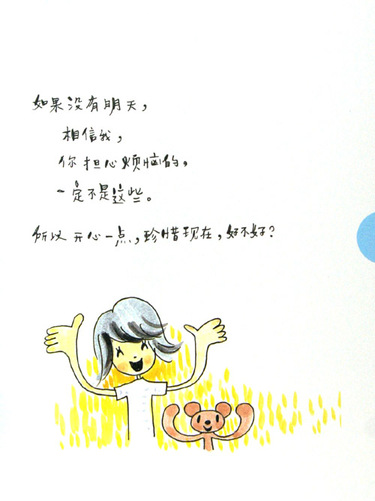 如果没有明天，
相信我，
你担心烦恼的，
一定不是这些。
所以开心一点，珍惜现在，好不好？